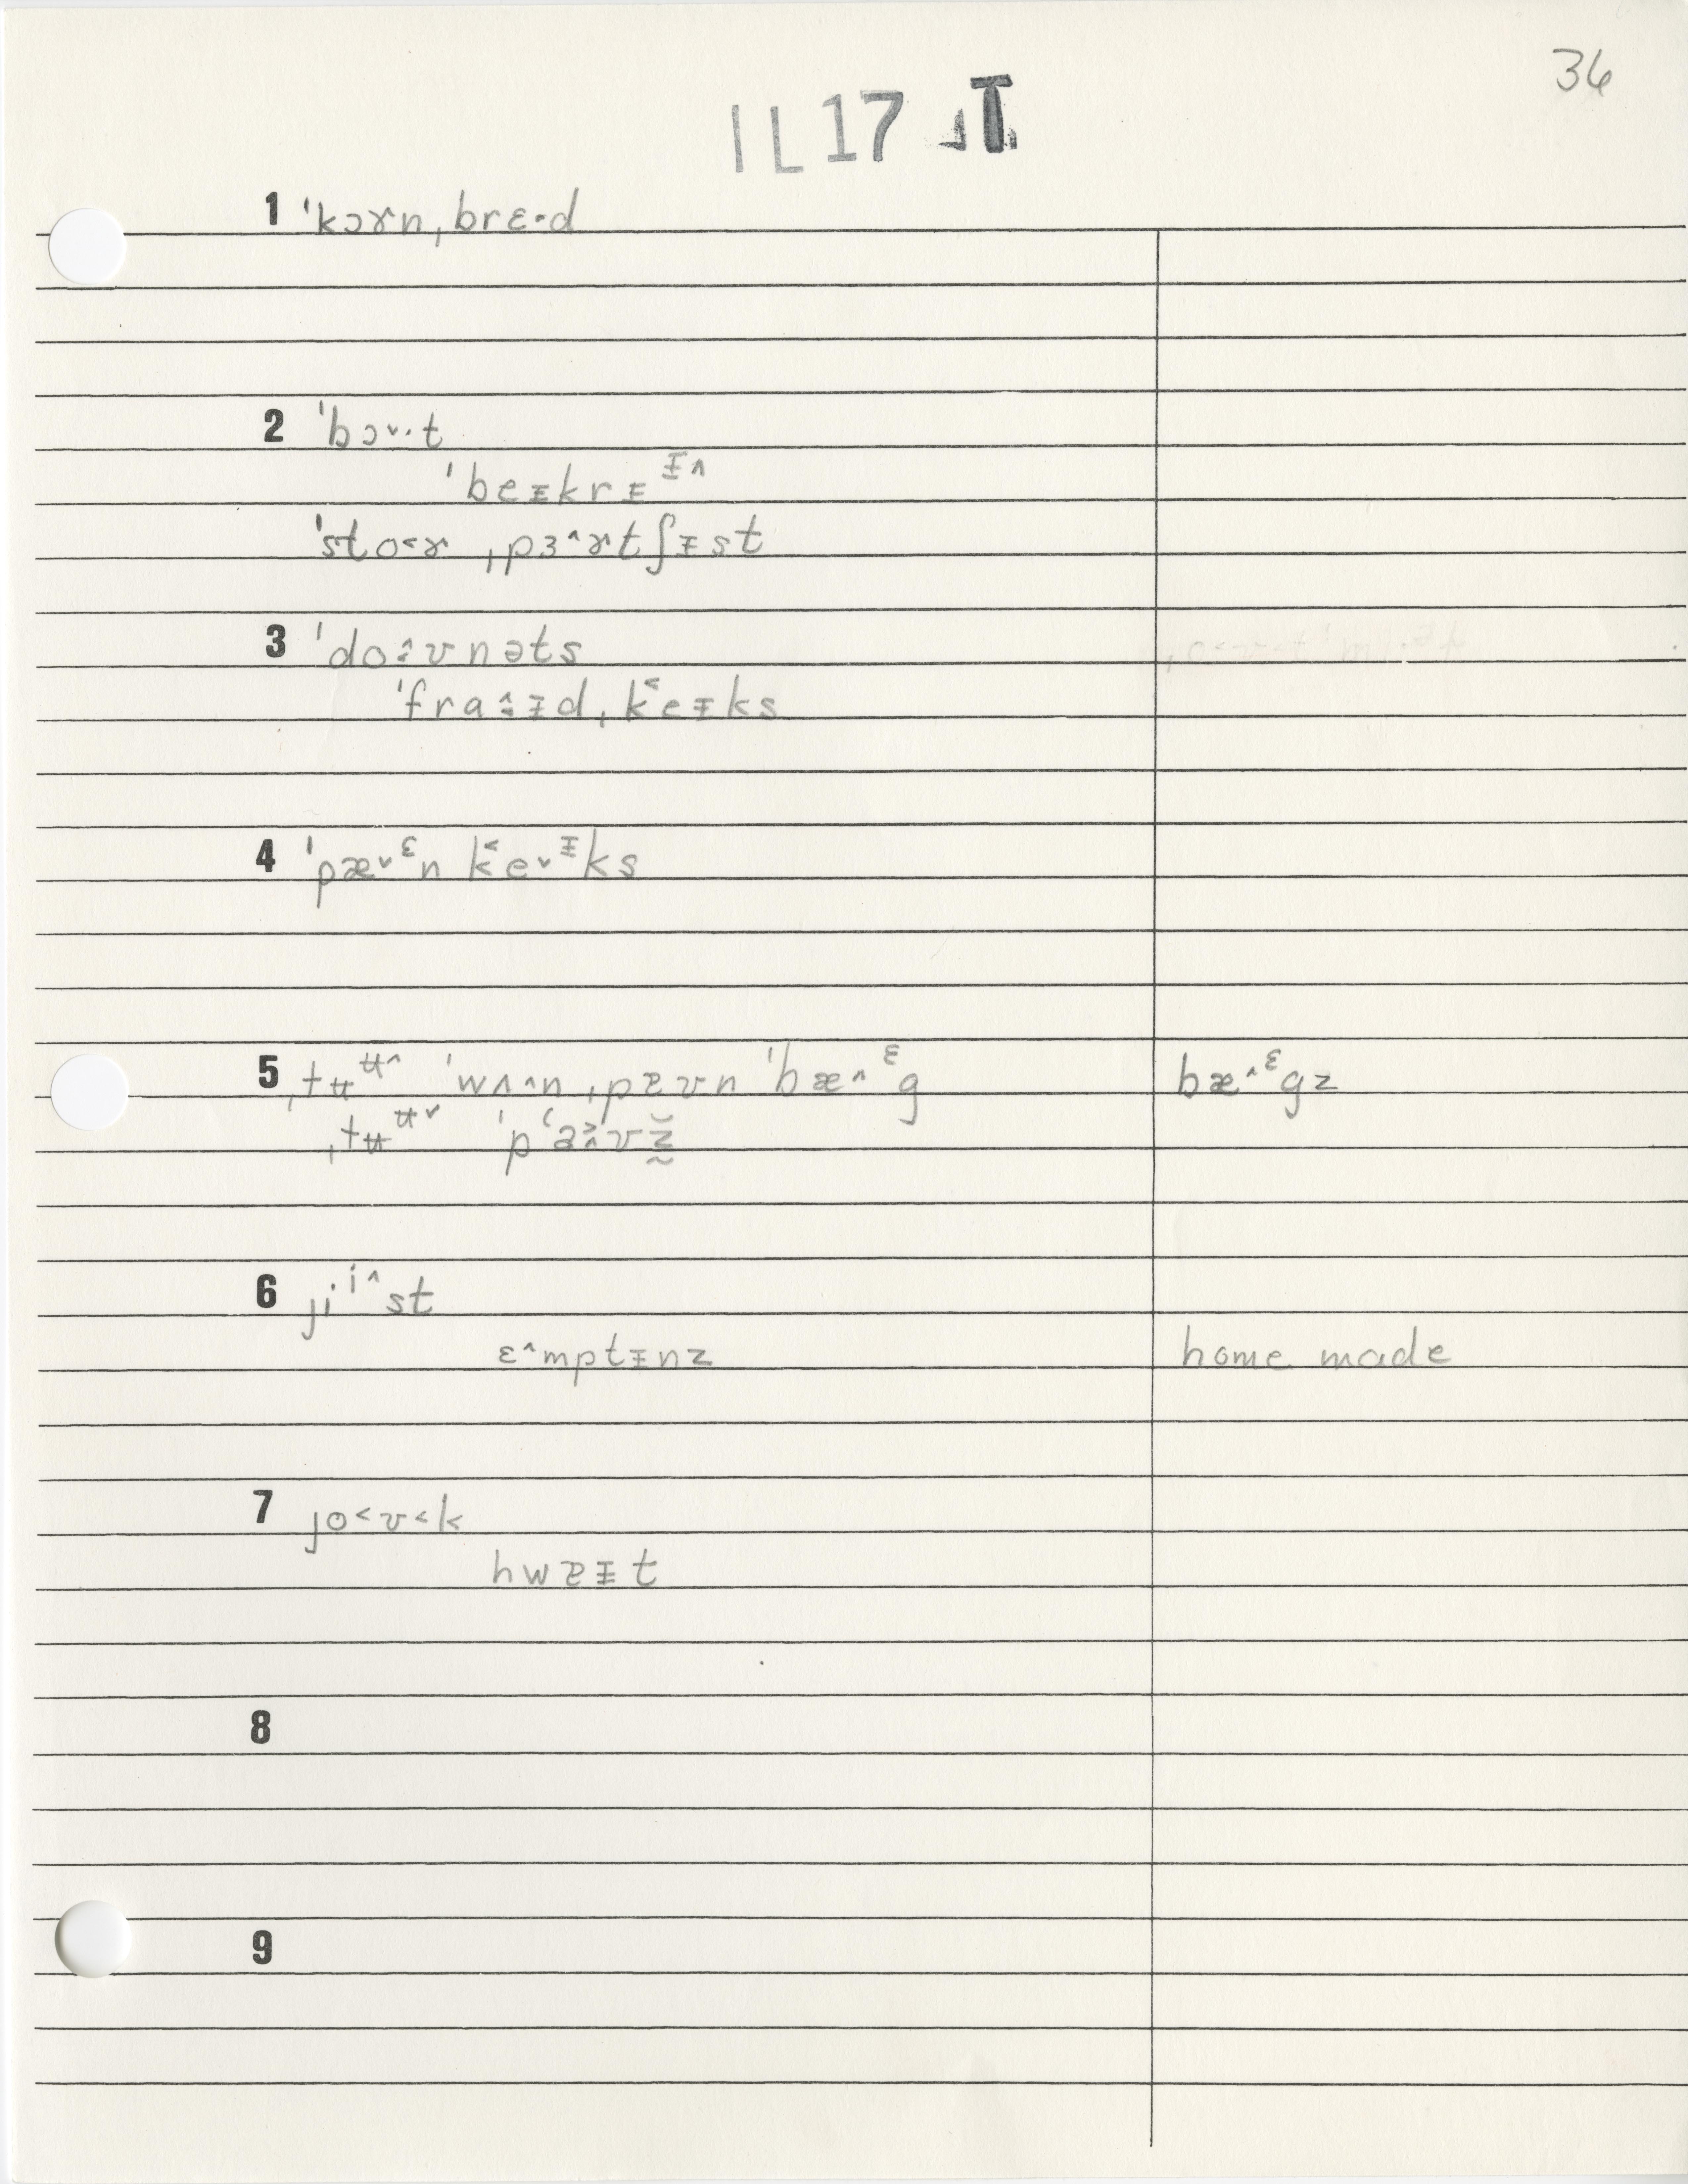 36
IL17 JT
1 ˈkɔɤn ˌbrɛ·d
2 ˈbɔ˅·t
ˈbeᵻkrᵻᵻ˄
ˈsto˂ɤ ˌpɜ˄ɤtʃᵻst
3 ˈdo˄·ʊnəts
ˈfra˄·ᵻd ˌk˂eᵻks
4 ˈpæ˅ᵋn k˂e˅ᵻks
5 ˌtʉʉ˄ ˈwʌ˄n ˌpɐʊn ˈbæ˄ᵋg bæ˄ᵋgz
6 jiⁱ˄st
ɛ˄mptᵻnz home made
7 jo˂ʊ˂k
hwɐᵻt
8
9